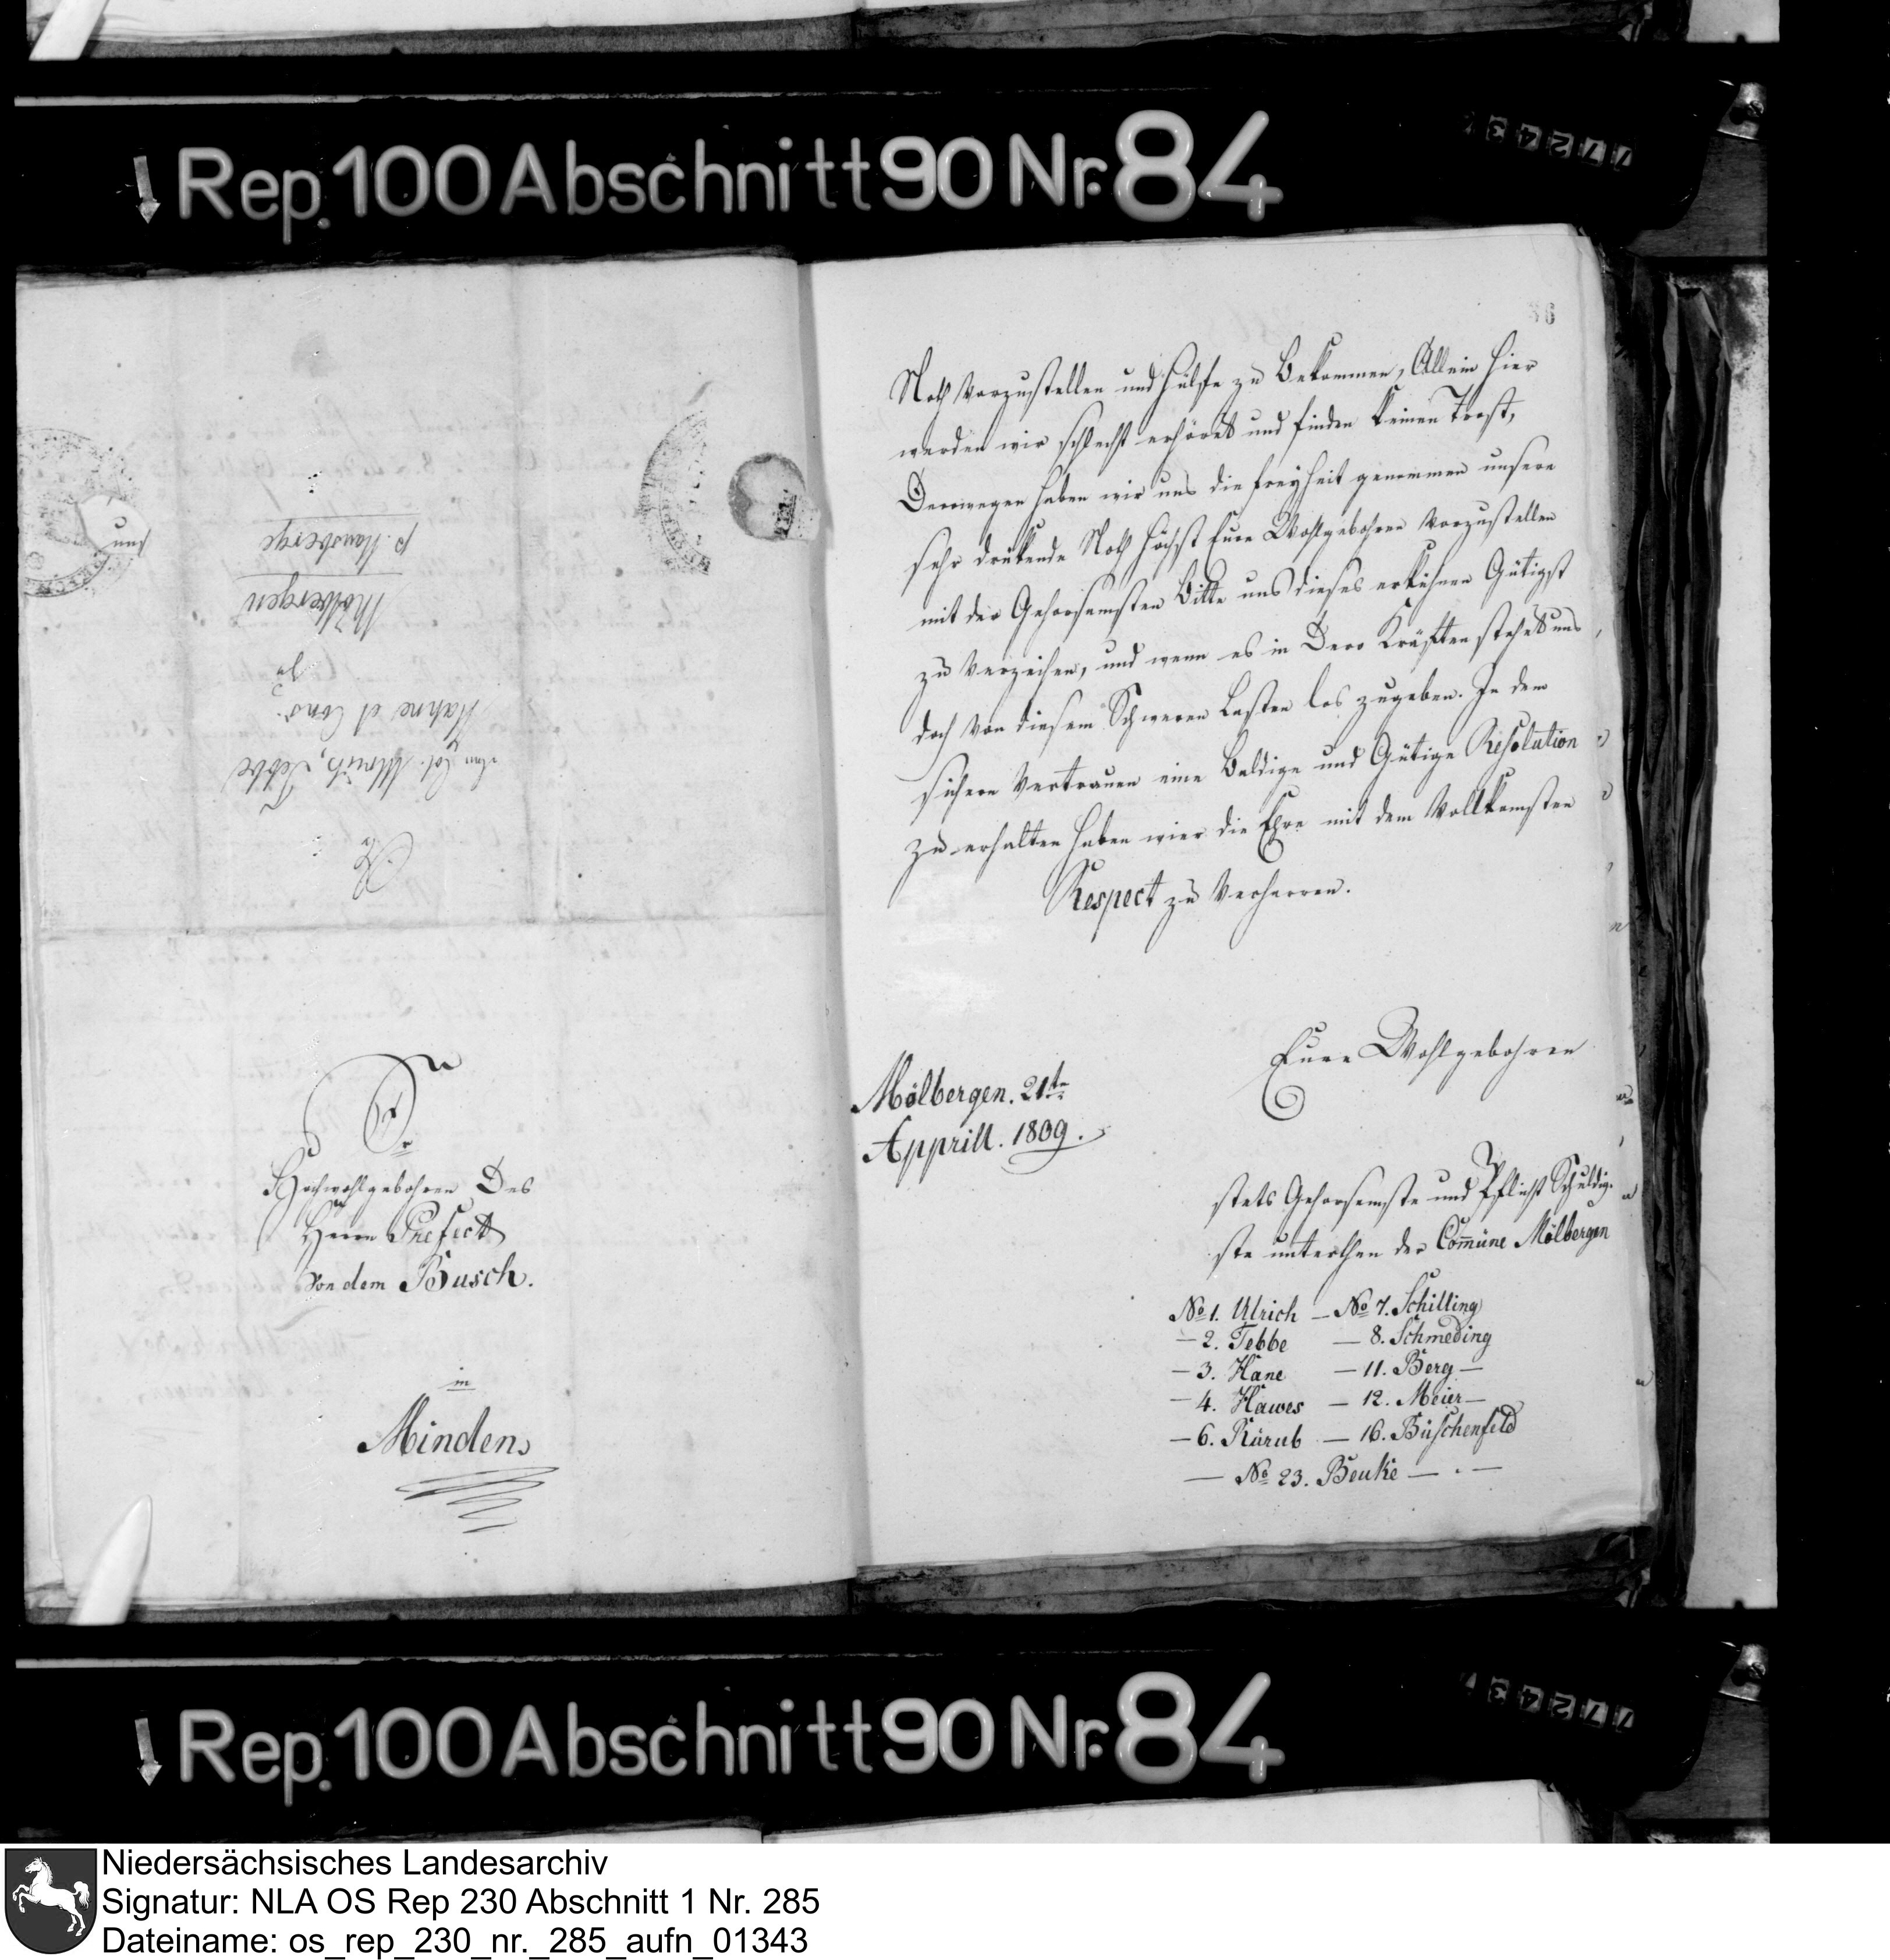 ↓ Rep. 100 Abschnitt 90 Nr. 84
77243
86
An
Col. Ulrich, Tebbe
Hahne et Cons.
zu
Mölbergen
p. Hausberge
Sr
Hochwohlgebohren Des
Herrn Prefect
Von dem Busch.
in
Minden
Noth Vorzustellen und hülfe zu Bekommen, Allein hier
werden wir schlecht erhöret und finden keinen Trost,
Derowegen haben wir uns die freyheit genommen unsere
sehr drükende Noth höchst Eure Wohlgebohren Vorzustellen
mit der Gehorsamsten Bitte uns dieses erkühnen Gütigst
zu Verzeihen, und wenn es in Dero Kräften stehet uns
doch Von diesem Schweren Lasten los zugeben. In dem
sichern Vertrauen eine Baldige und Gütige Resolution
zu erhalten haben wier die Ehre mit dem Vollkomsten
Respect zu Verharren.
Eure Wohlgebohren
Mölbergen. 21te
Apprill. 1809.
stets Gehorsamste und Pflicht Schuldig-
ste unterthan der Com̄üne Mölbergen
No 1. Ulrich — No 7. Schilling
— 2. Tebbe — 8. Schmeding
— 3. Hane — 11. Berg —
— 4. Hawes — 12. Meier —
— 6. Rürub — 16. Büschenfeld
— No 23. Beuke — . —
↓ Rep. 100 Abschnitt 90 Nr. 84
77243
Niedersächsisches Landesarchiv
Signatur: NLA OS Rep 230 Abschnitt 1 Nr. 285
Dateiname: os_rep_230_nr._285_aufn_01343